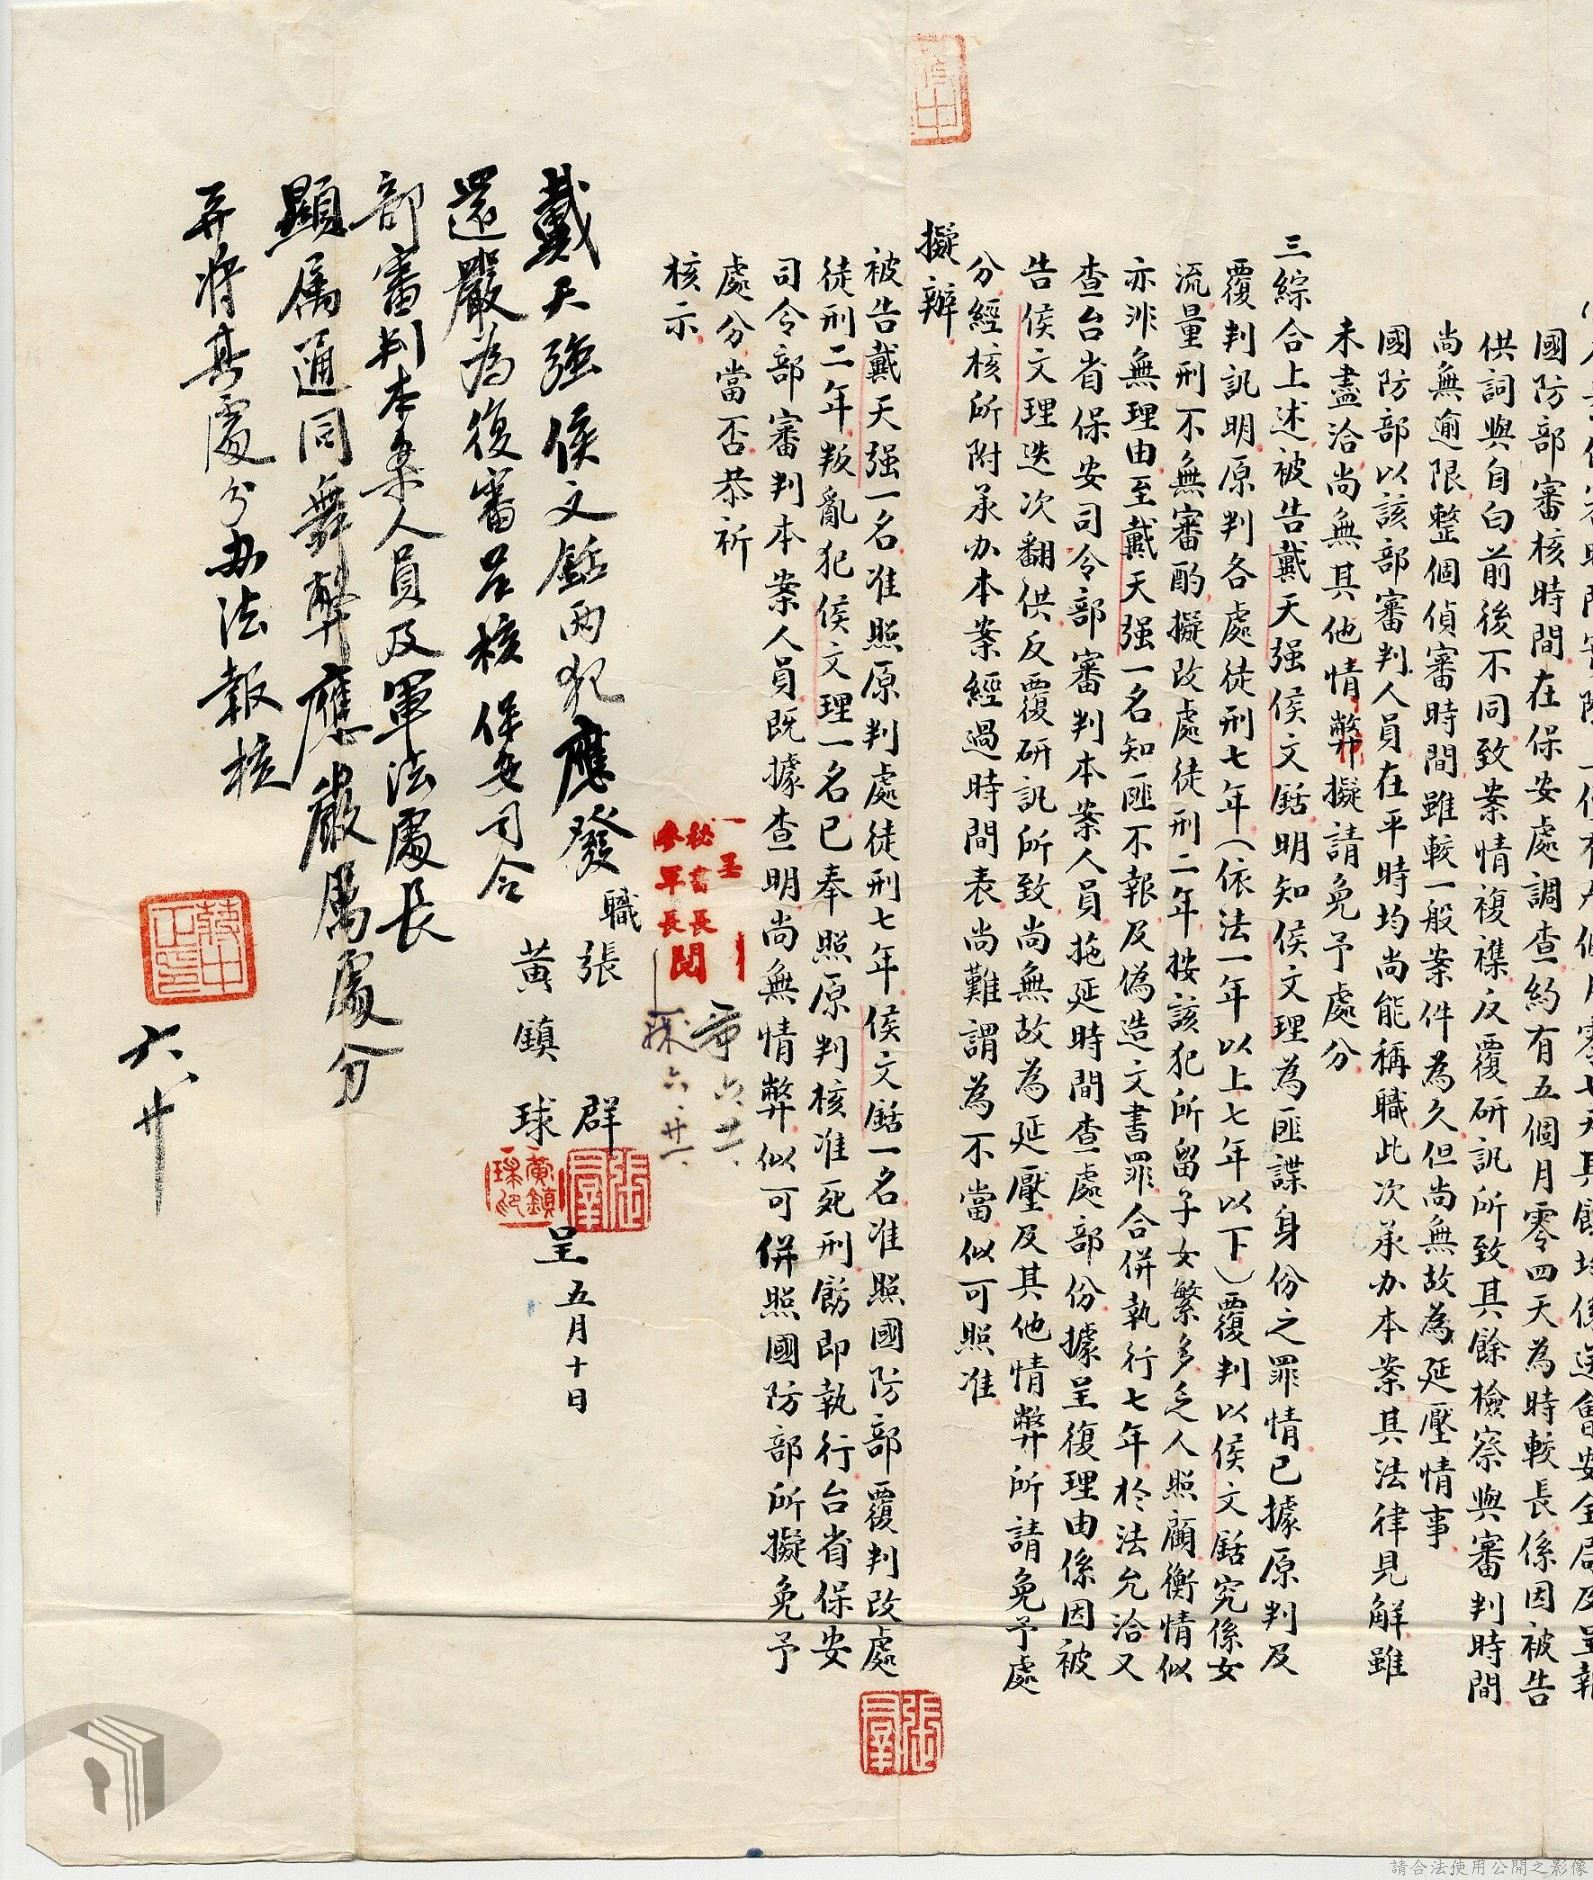 國防部審核時間在保安處調查約有五個月零四天為時較長係因被告
供詞與自白前後不同致案情複襍反覆研訊所致其餘檢察與審判時間
尚無逾限整個偵審時間雖較一般案件為久但尚無故為延壓情事
國防部以該部審判人員在平時均尚能稱職此次承办本案其法律見解雖
未盡洽尚無其他情弊擬請免予處分
三綜合上述被告戴天强侯文銛明知侯文理為匪諜身份之罪情已據原判及
覆判訊明原判各處徒刑七年(依法一年以上七年以下)覆判以侯文銛究係女
流量刑不無審酌擬改處徒刑二年按該犯所留子女繁多乏人照顧衡情似
亦非無理由至戴天强一名知匪不報及偽造文書罪合併執行七年於法允洽又
查台省保安司令部審判本案人員拖延時間查處部份據呈復理由係因被
告侯文理迭次翻供反覆研訊所致尚無故為延壓及其他情弊所請免予處
分經核所附承办本案經過時間表尚難謂為不當似可照准
擬辦
被告戴天强一名准照原判處徒刑七年侯文銛一名准照國防部覆判改處
徒刑二年叛亂犯侯文理一名已奉照原判核准死刑飭即執行台省保安
司令部審判本案人員既據查明尚無情弊似可併照國防部所擬免予
處分當否恭祈
核示
職張群
黃鎮球
呈五月十日
秘書長
參軍長
閱
六、廿一、
戴天強侯文銛兩犯應發
還嚴為復審呈核保安司令
部審判本案人員及軍法處長
顯属通同舞弊應嚴属處分
并將其處分办法報核
六、廿
請合法使用公開之影像